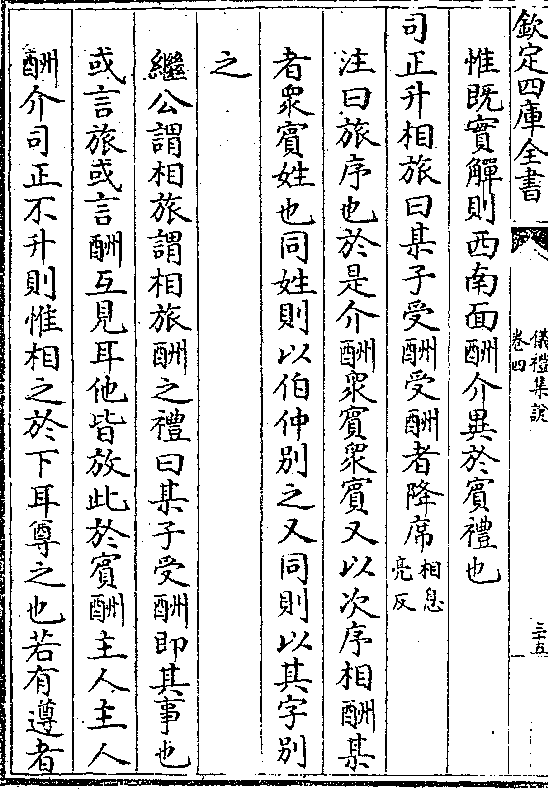 欽定四庫全書
儀禮集說
卷四
三十五
惟既實觶則西南面酬介異於賓禮也
司正升相旅曰某子受酬受酬者降席相息亮反
注曰旅序也於是介酬衆賓衆賓又以次序相酬某
者衆賓姓也同姓則以伯仲別之又同則以其字別
之
繼公謂相旅謂相旅酬之禮曰某子受酬即其事也
或言旅或言酬互見耳他皆放此於賓酬主人主人
酬介司正不升則惟相之於下耳尊之也若有遵者